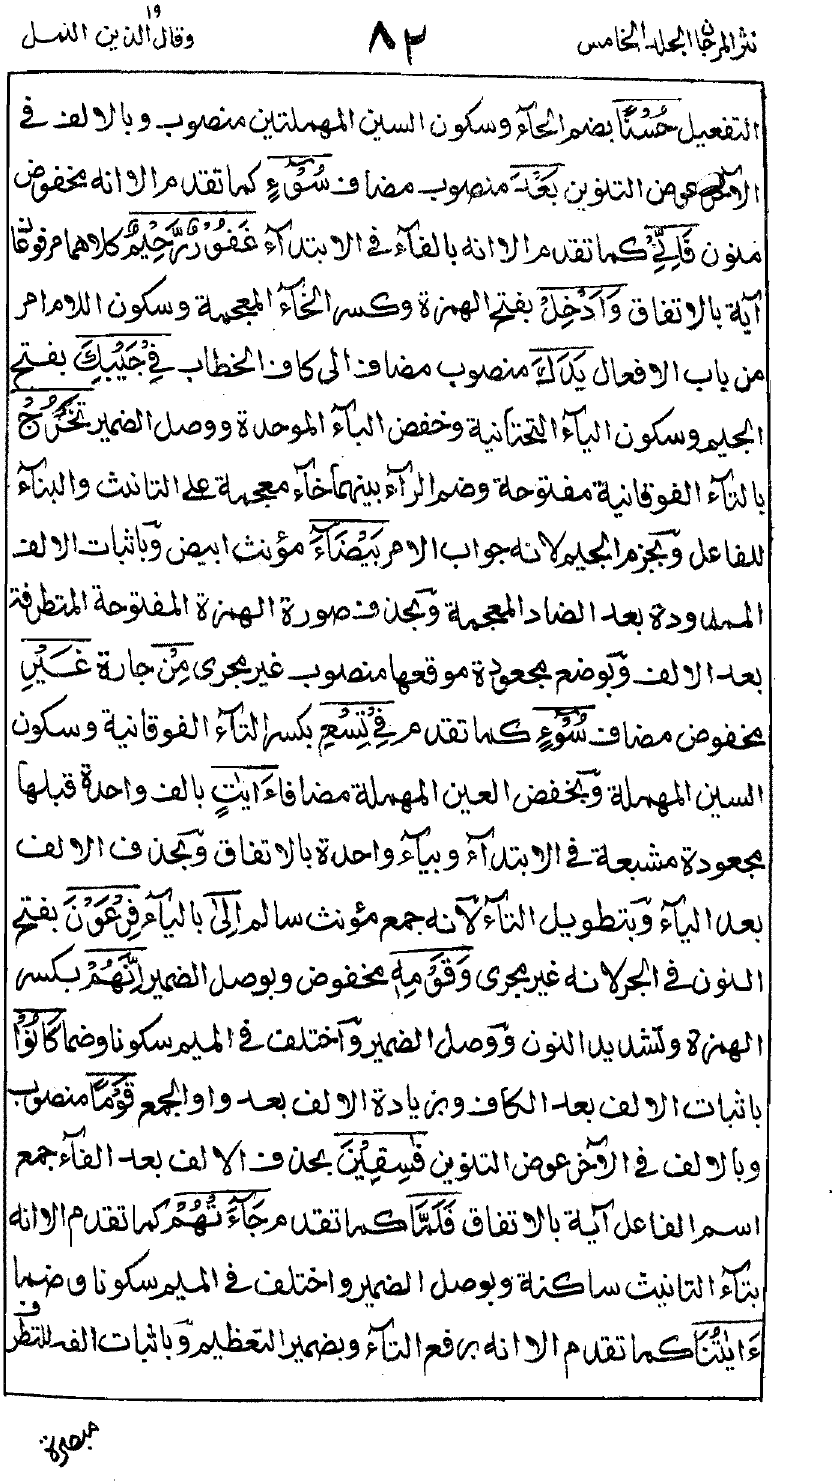 نثر المرجان المجلد الخامس ٨٢ وقال الذين ١٩ النمل
التفعيل حُسْنًا بضم الحآء وسكون السين المهملتين منصوب وبالالف في
الآخر عوض التنوين بَعْدَ منصوب مضاف سُوْٓءٍ كما تقدم الا انه مخفوض
منون فَاِنِّيْ كما تقدم الا انه بالفآء في الابتدآء غَفُوْرٌ رَّحِيْمٌ كلاهما مرفوعان
آية بالاتفاق وَاَدْخِلْ بفتح الهمزة وكسر الخآء المعجمة وسكون اللام امر
من باب الافعال يَدَكَ منصوب مضاف الى كاف الخطاب فِيْ جَيْبِكَ بفتح
الجيم وسكون اليآء التحتانية وخفض البآء الموحدة ووصل الضمير تَخْرُجْ
بالتآء الفوقانية مفتوحة وضم الرآء بينهما خآء معجمة على التانيث والبنآء
للفاعل وبجزم الجيم لانه جواب الامر بَيْضَآءَ مؤنث ابيض وباثبات الالف
الممدودة بعد الضاد المعجمة وبحذف صورة الهمزة المفتوحة المتطرفة
بعد الالف وبوضع مجعودة موقعها منصوب غير مجرى مِنْ جارة غَيْرِ
مخفوض مضاف سُوْٓءٍ كما تقدم فِيْ تِسْعِ بكسر التآء الفوقانية وسكون
السين المهملة وبخفض العين المهملة مضافا ءَايٰتٍ بالف واحدة قبلها
مجعودة مشبعة في الابتدآء وبيآء واحدة بالاتفاق وبحذف الالف
بعد اليآء وبتطويل التآء لانه جمع مؤنث سالم اِلٰى باليآء فِرْعَوْنَ بفتح
النون في الجر لانه غير مجرى وَقَوْمِهٖ مخفوض وبوصل الضمير اِنَّهُمْ بكسر
الهمزة وتشديد النون ووصل الضمير واختلف في الميم سكونا وضما كَانُوْا
باثبات الالف بعد الكاف وبزيادة الالف بعد واو الجمع قَوْمًا منصوب
وبالالف في الآخر عوض التنوين فٰسِقِيْنَ بحذف الالف بعد الفآء جمع
اسم الفاعل آية بالاتفاق فَلَمَّا كما تقدم جَآءَتْهُمْ كما تقدم الا انه
بتآء التانيث ساكنة وبوصل الضمير واختلف في الميم سكونا وضما
ءَايٰتُنَا كما تقدم الا انه برفع التآء وبضمير التعظيم وباثبات الفه للتطرف
مبصرة